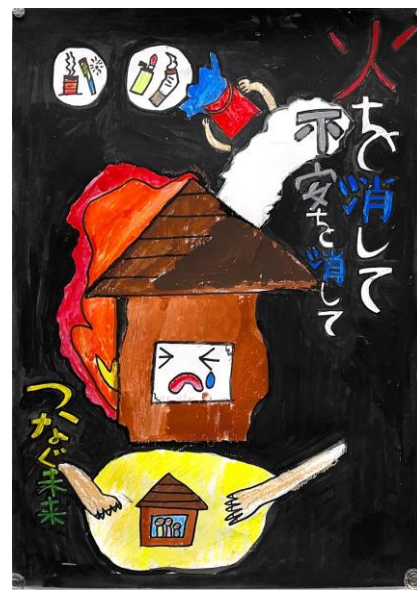 火を消して
不安を消して
つなぐ未来